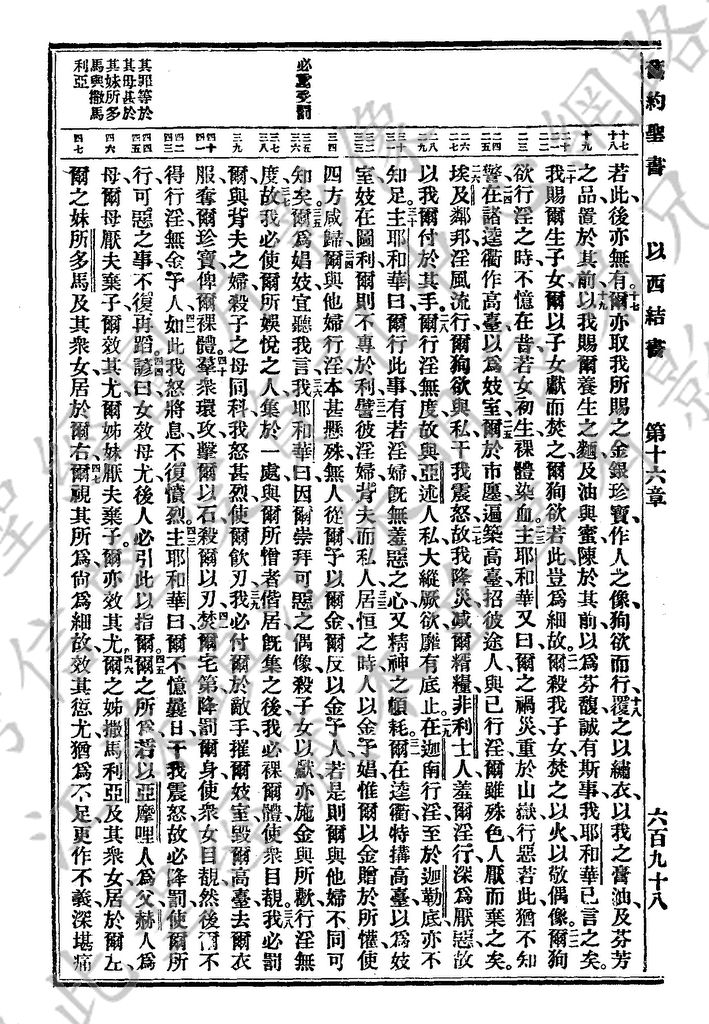 舊約聖書　以西結書　第十六章　六百九十八
若此後亦無有爾亦取我所賜之金銀珍寶作人之像狥欲而行覆之以繡衣以我之膏油及芬芳
之品置於其前以我賜爾養生之麵及油與蜜陳於其前以為芬馥誠有斯事我耶和華已言之矣
我賜爾生子女爾以子女獻而焚之爾狥欲若此豈為細故爾殺我子女焚之以火以敬偶像爾狥
欲行淫之時不憶在昔若女初生裸體染血主耶和華又曰爾之禍災重於山嶽行惡若此猶不知
警在諸逵衢作高臺以為妓室爾於市廛遍築高臺招彼途人與已行淫爾雖殊色人厭而棄之矣
埃及鄰邦淫風流行爾狥欲與私干我震怒故我降災減爾精糧非利士人羞爾淫行深為厭惡故
以我爾付於其手爾行淫無度故與亞述人私大縱厥欲靡有底止在迦南行淫至於迦勒底亦不
知足主耶和華曰爾行此事有若淫婦旣無羞惡之心又精神之頓耗爾在逵衢特搆高臺以為妓
室妓在圖利爾則不專於利譬彼淫婦背夫而私人居恒之時人以金予娼惟爾以金贈於所懽使
四方咸歸爾與他婦行淫本甚懸殊無人從爾予以爾金爾反以金予人若是則爾與他婦不同可
知矣爾為娼妓宜聽我言我耶和華曰因爾崇拜可惡之偶像殺子女以獻亦施金與所歡行淫無
度故我必使爾所娛悅之人集於一處與爾所憎者偕居旣集之後我必裸爾體使衆目覩我必罰
爾與背夫之婦殺子之母同科我怒甚烈使爾飲刃我必付爾於敵手摧爾妓室毀爾高臺去爾衣
服奪爾珍寶俾爾裸體羣衆環攻擊爾以石殺爾以刃焚爾宅第降罰爾身使衆女目覩然後爾不
得行淫無金予人如此我怒將息不復憤烈主耶和華曰爾不憶曩日干我震怒故必降罰使爾所
行可惡之事不復再蹈諺曰女效母尤後人必引此以指爾爾之所為若以亞摩哩人為父赫人為
母爾母厭夫棄子爾效其尤爾姊妹厭夫棄子爾亦效其尤爾之姊撒馬利亞及其衆女居於爾左
爾之妹所多馬及其衆女居於爾右爾視其所為尙為細故效其愆尤猶為不足更作不義深堪痛
必重受罰
其罪等於
其母甚於
其妹所多
馬與撒馬
利亞